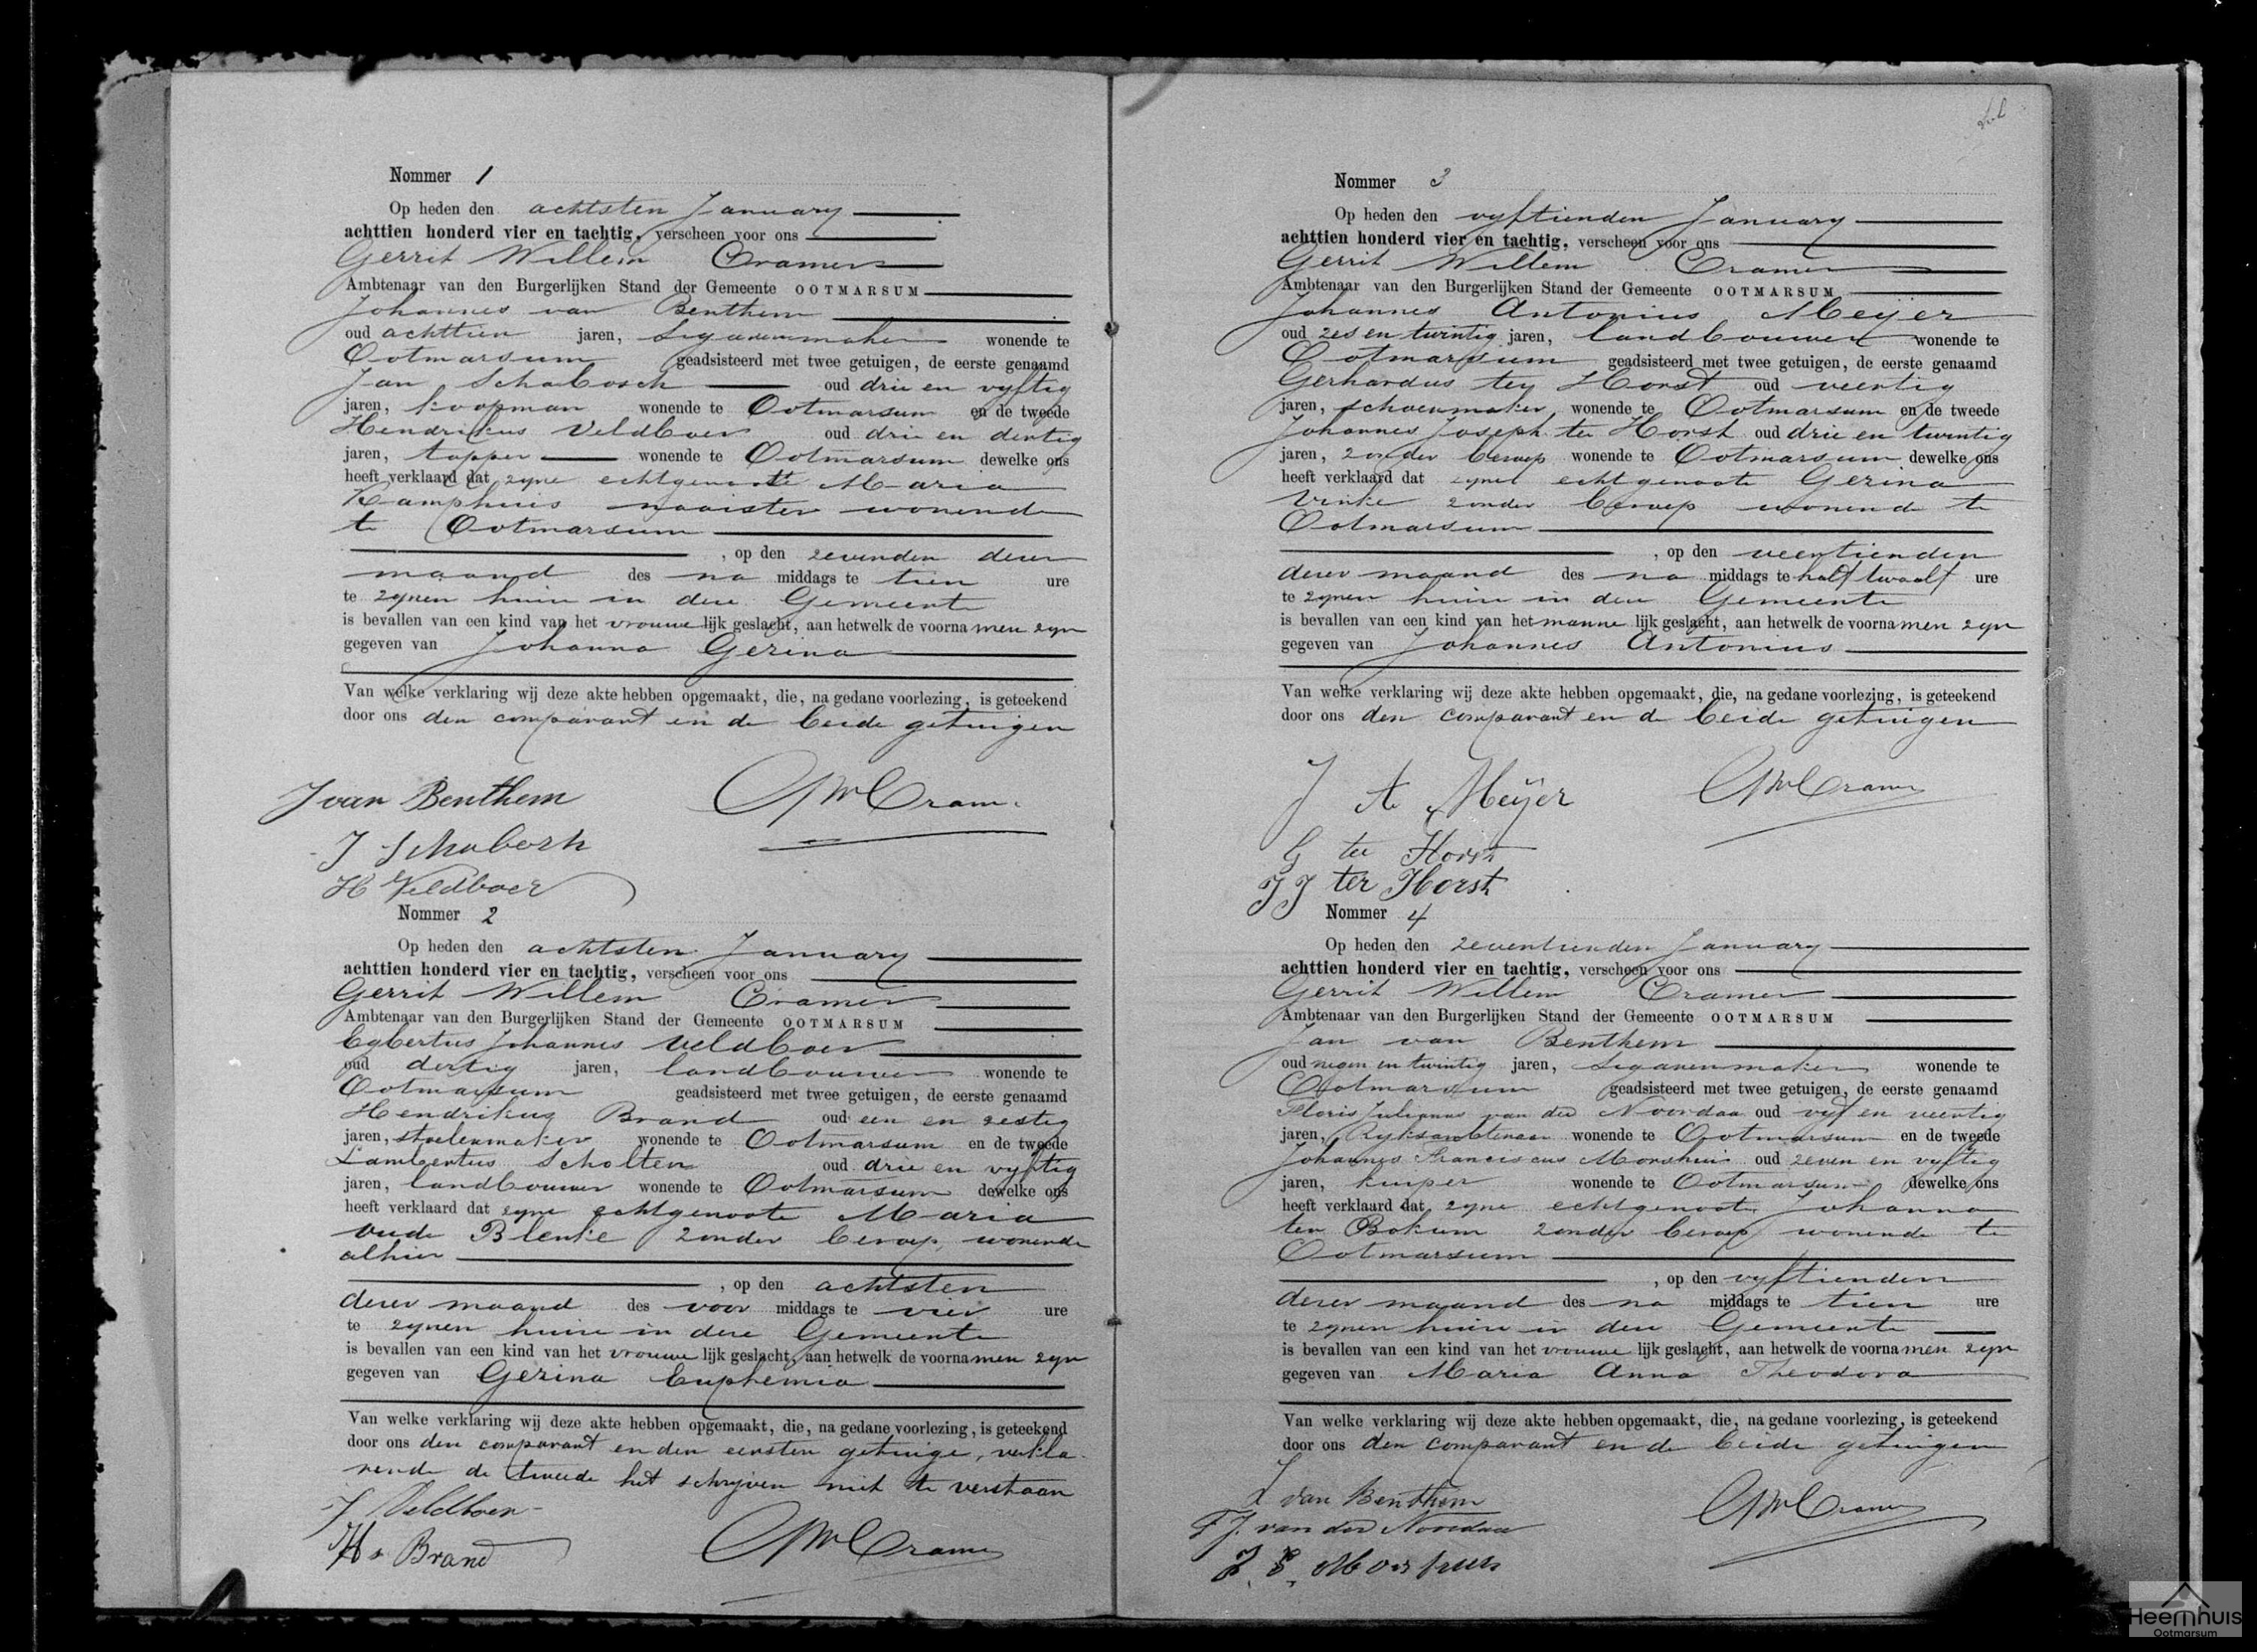 Nommer 1
Op heden den achtsten January
achttien honderd vier en tachtig, verscheen voor ons
Gerrit Willem Cramer
Ambtenaar van den Burgerlijken Stand der Gemeente OOTMARSUM
Johannes van Benthem
oud achttien jaren, Sigarenmaker wonende te
Ootmarsum geadsisteerd met twee getuigen, de eerste genaamd
Jan Schabosch oud drie en vyftig
jaren, koopman wonende te Ootmarsum en de tweede
Hendrikus Veldboer oud drie en dertig
jaren, tapper wonende te Ootmarsum dewelke ons
heeft verklaard dat zyne echtgenoote Maria
Kamphuis naaister wonende
te Ootmarsum
, op den zevenden dezer
maand des na middags te tien ure
te zynen huize in deze Gemeente
is bevallen van een kind van het vrouwelijk geslacht, aan hetwelk de voornamen zyn
gegeven van Johanna Gezina
Van welke verklaring wij deze akte hebben opgemaakt, die, na gedane voorlezing, is geteekend
door ons den comparant en de beide getuigen
J van Benthem GWCramer
J Schabosh
H Veldboer
Nommer 2
Op heden den achtsten January
achttien honderd vier en tachtig, verscheen voor ons
Gerrit Willem Cramer
Ambtenaar van den Burgerlijken Stand der Gemeente OOTMARSUM
Egbertus Johannes Veldboer
oud dertig jaren, landbouwer wonende te
Ootmarsum geadsisteerd met twee getuigen, de eerste genaamd
Hendrikus Brand oud een en zestig
jaren, stoelenmaker wonende te Ootmarsum en de tweede
Lambertus Scholten oud drie en vyftig
jaren, landbouwer wonende te Ootmarsum dewelke ons
heeft verklaard dat zyne echtgenoote Maria
oude Blenke zonder beroep, wonende
alhier
, op den achtsten
dezer maand des voor middags te vier ure
te zynen huize in deze Gemeente
is bevallen van een kind van het vrouwelijk geslacht, aan hetwelk de voornamen zyn
gegeven van Gezina Euphemia
Van welke verklaring wij deze akte hebben opgemaakt, die, na gedane voorlezing, is geteekend
door ons den comparant en den eersten getuige, verkla-
rende de tweede het schrijven niet te verstaan
J Veldboer
Hs Brand GWCramer
Nommer 3
Op heden den vyftienden January
achttien honderd vier en tachtig, verscheen voor ons
Gerrit Willem Cramer
Ambtenaar van den Burgerlijken Stand der Gemeente OOTMARSUM
Johannes Antonius Meijer
oud zes en twintig jaren, landbouwer wonende te
Ootmarsum geadsisteerd met twee getuigen, de eerste genaamd
Gerhardus ter Horst oud veertig
jaren, schoenmaker wonende te Ootmarsum en de tweede
Johannes Joseph ter Horst oud drie en twintig
jaren, zonder beroep wonende te Ootmarsum dewelke ons
heeft verklaard dat zyne echtgenoote Gezina
Vinke zonder beroep wonende te
Ootmarsum
, op den veertienden
dezer maand des na middags te half twaalf ure
te zynen huize in deze Gemeente
is bevallen van een kind van het mannelijk geslacht, aan hetwelk de voornamen zyn
gegeven van Johannes Antonius
Van welke verklaring wij deze akte hebben opgemaakt, die, na gedane voorlezing, is geteekend
door ons den comparant en de beide getuigen
J A Meijer GWCramer
G ter Horst
J J ter Horst
Nommer 4
Op heden den zeventienden January
achttien honderd vier en tachtig, verscheen voor ons
Gerrit Willem Cramer
Ambtenaar van den Burgerlijken Stand der Gemeente OOTMARSUM
Jan van Benthem
oud negen en twintig jaren, Sigarenmaker wonende te
Ootmarsum geadsisteerd met twee getuigen, de eerste genaamd
Floris Julianus van der Noordaa oud vyf en veertig
jaren, Ryksambtenaar wonende te Ootmarsum en de tweede
Johannes Franciscus Morshuis oud zeven en vyftig
jaren, kuiper wonende te Ootmarsum dewelke ons
heeft verklaard dat zyne echtgenoote Johanna
ten Bokum zonder beroep wonende te
Ootmarsum
, op den vyftienden
dezer maand des na middags te tien ure
te zynen huize in deze Gemeente
is bevallen van een kind van het vrouwelijk geslacht, aan hetwelk de voornamen zyn
gegeven van Maria Anna Theodora
Van welke verklaring wij deze akte hebben opgemaakt, die, na gedane voorlezing, is geteekend
door ons den comparant en de beide getuigen
J van Benthem GWCramer
F J. van der Noordaa
J. F. Morshuis
Heemhuis
Ootmarsum